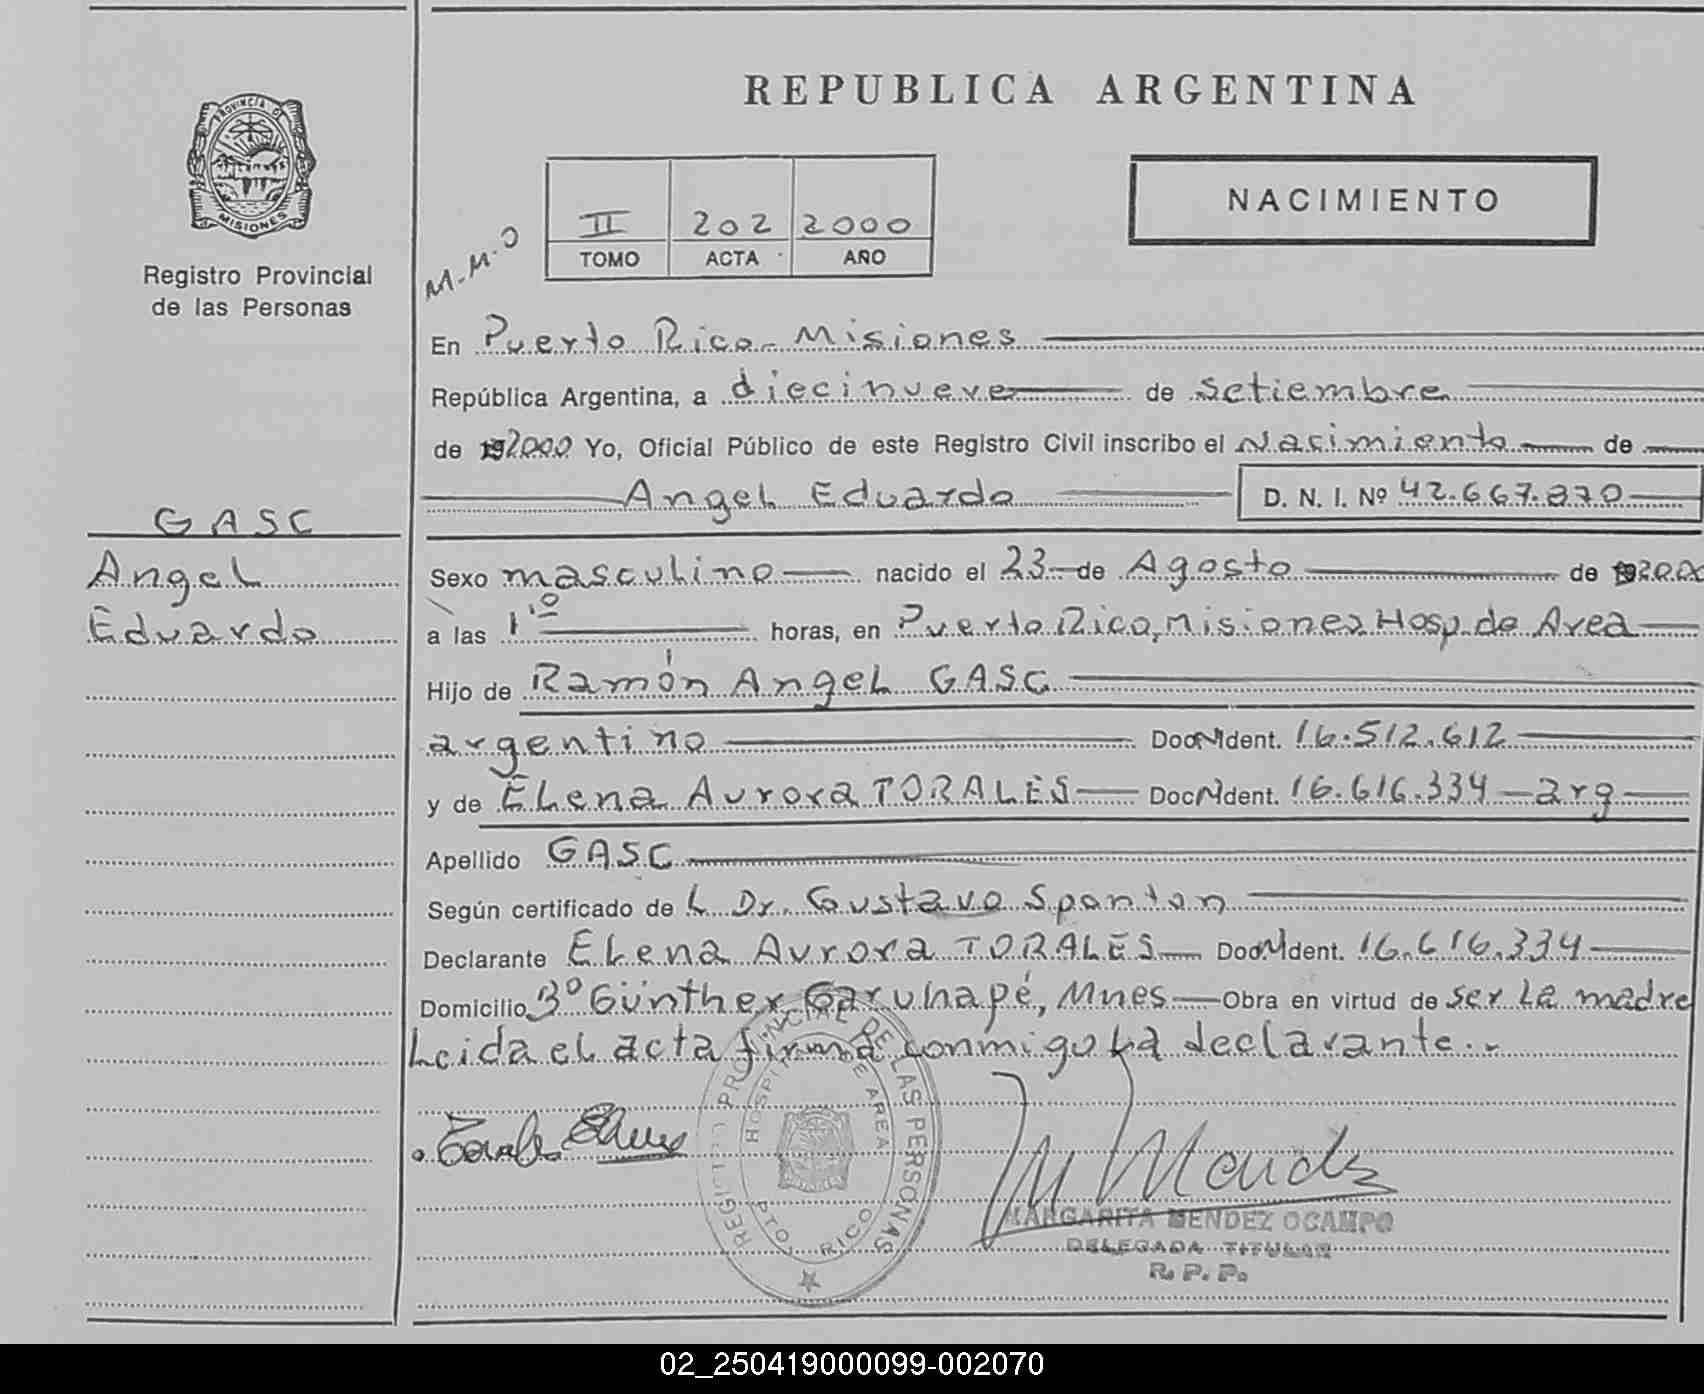 REPUBLICA ARGENTINA
PROVINCIA DE
MISIONES
Registro Provincial
de las Personas
NACIMIENTO
II 202 2000
TOMO ACTA AÑO
M-M-O
En Puerto Rico - Misiones
República Argentina, a diecinueve de setiembre
de 192000 Yo, Oficial Público de este Registro Civil inscribo el Nacimiento de
Angel Eduardo D. N. I. Nº 42.667.870
GASC
Angel
Eduardo
Sexo masculino nacido el 23 de Agosto de 192000
a las 1'º horas, en Puerto Rico, Misiones Hosp. de Area
Hijo de Ramón Angel GASC
argentino Doc. Ident. 16.512.612
y de Elena Aurora TORALES Doc. Ident. 16.616.334 - arg
Apellido GASC
Según certificado de L Dr. Gustavo Sponton
Declarante Elena Aurora TORALES Doc. Ident. 16.616.334
Domicilio Bº Günther Garuhapé, Mnes Obra en virtud de ser la madre
Leida el acta firma conmigo la declarante..-
Torales Elena
REGIST. PROVINCIAL DE LAS PERSONAS
HOSPITAL DE AREA
PTO. RICO
M Mendez
MARGARITA MENDEZ OCAMPO
DELEGADA TITULAR
R. P. P.
02_250419000099-002070